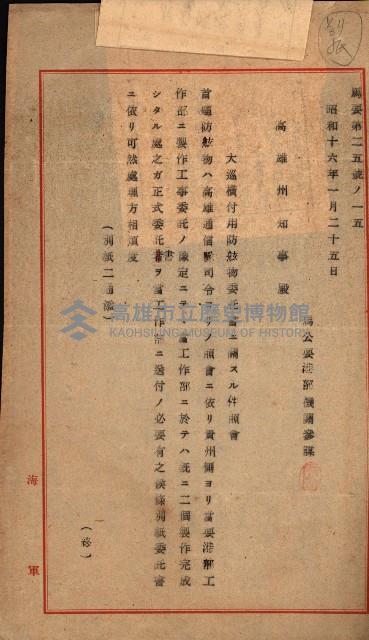 別紙
馬要第二五號ノ一五
昭和十六年一月二十五日
馬公要港部機關參謀
高雄州知事殿
大巡橫付用防舷物委託書ニ關スル件照會
首題防舷物ハ高雄通信隊司令ヨリノ照會ニ依リ貴州側ヨリ當要港部工
作部ニ製作工事委託ノ豫定ニテ當工作部ニ於テハ既ニ二個製作完成
シタル處之ガ正式委託書ヲ當工作部ニ送付ノ必要有之候條別紙委託書
ニ依リ可然處理方相煩度
(別紙二通添)
(終)
海軍
高雄市立歷史博物館
KAOHSIUNG MUSEUM OF HISTORY